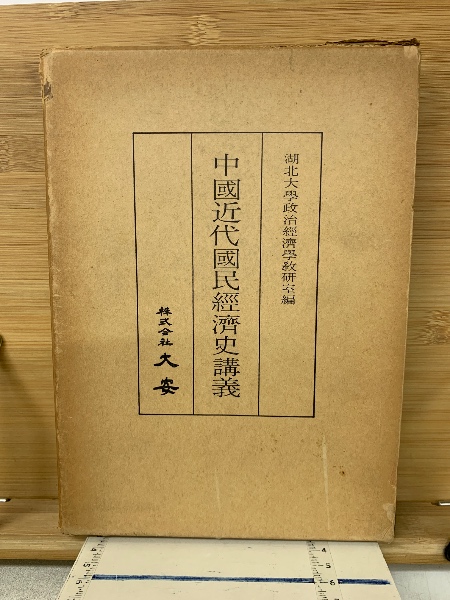 湖北大學政治經濟學敎研室編
中國近代國民經濟史講義
株式会社 大安